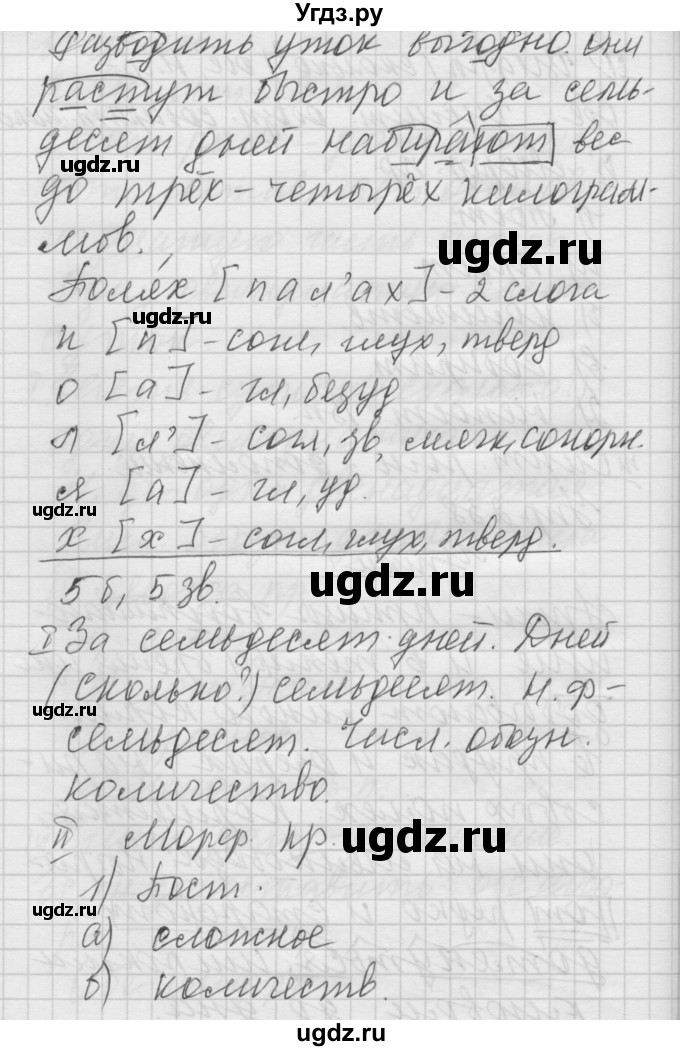 Угдз.ру
Разводить уток выгодно. Они
растут быстро и за семь-
десят дней набирают вес
до трёх-четырёх килограм-
мов.
Поля́х [пал'ах] - 2 слога
п [п] - согл, глух, тверд
о [а] - гл, безуд
л [л'] - согл, зв, мягк, сонорн.
я [а] - гл, уд.
х [х] - согл, глух, тверд.
5 б, 5 зв.
I За семьдесят дней. Дней
(сколько?) семьдесят. Н. ф -
семьдесят. Числ. обозн.
количество.
II Морф. пр.
1) Пост.
а) сложное
б) количеств.
ugdz.ru
ugdz.ru
ugdz.ru
ugdz.ru
ugdz.ru
ugdz.ru
ugdz.ru
ugdz.ru
ugdz.ru
ugdz.ru